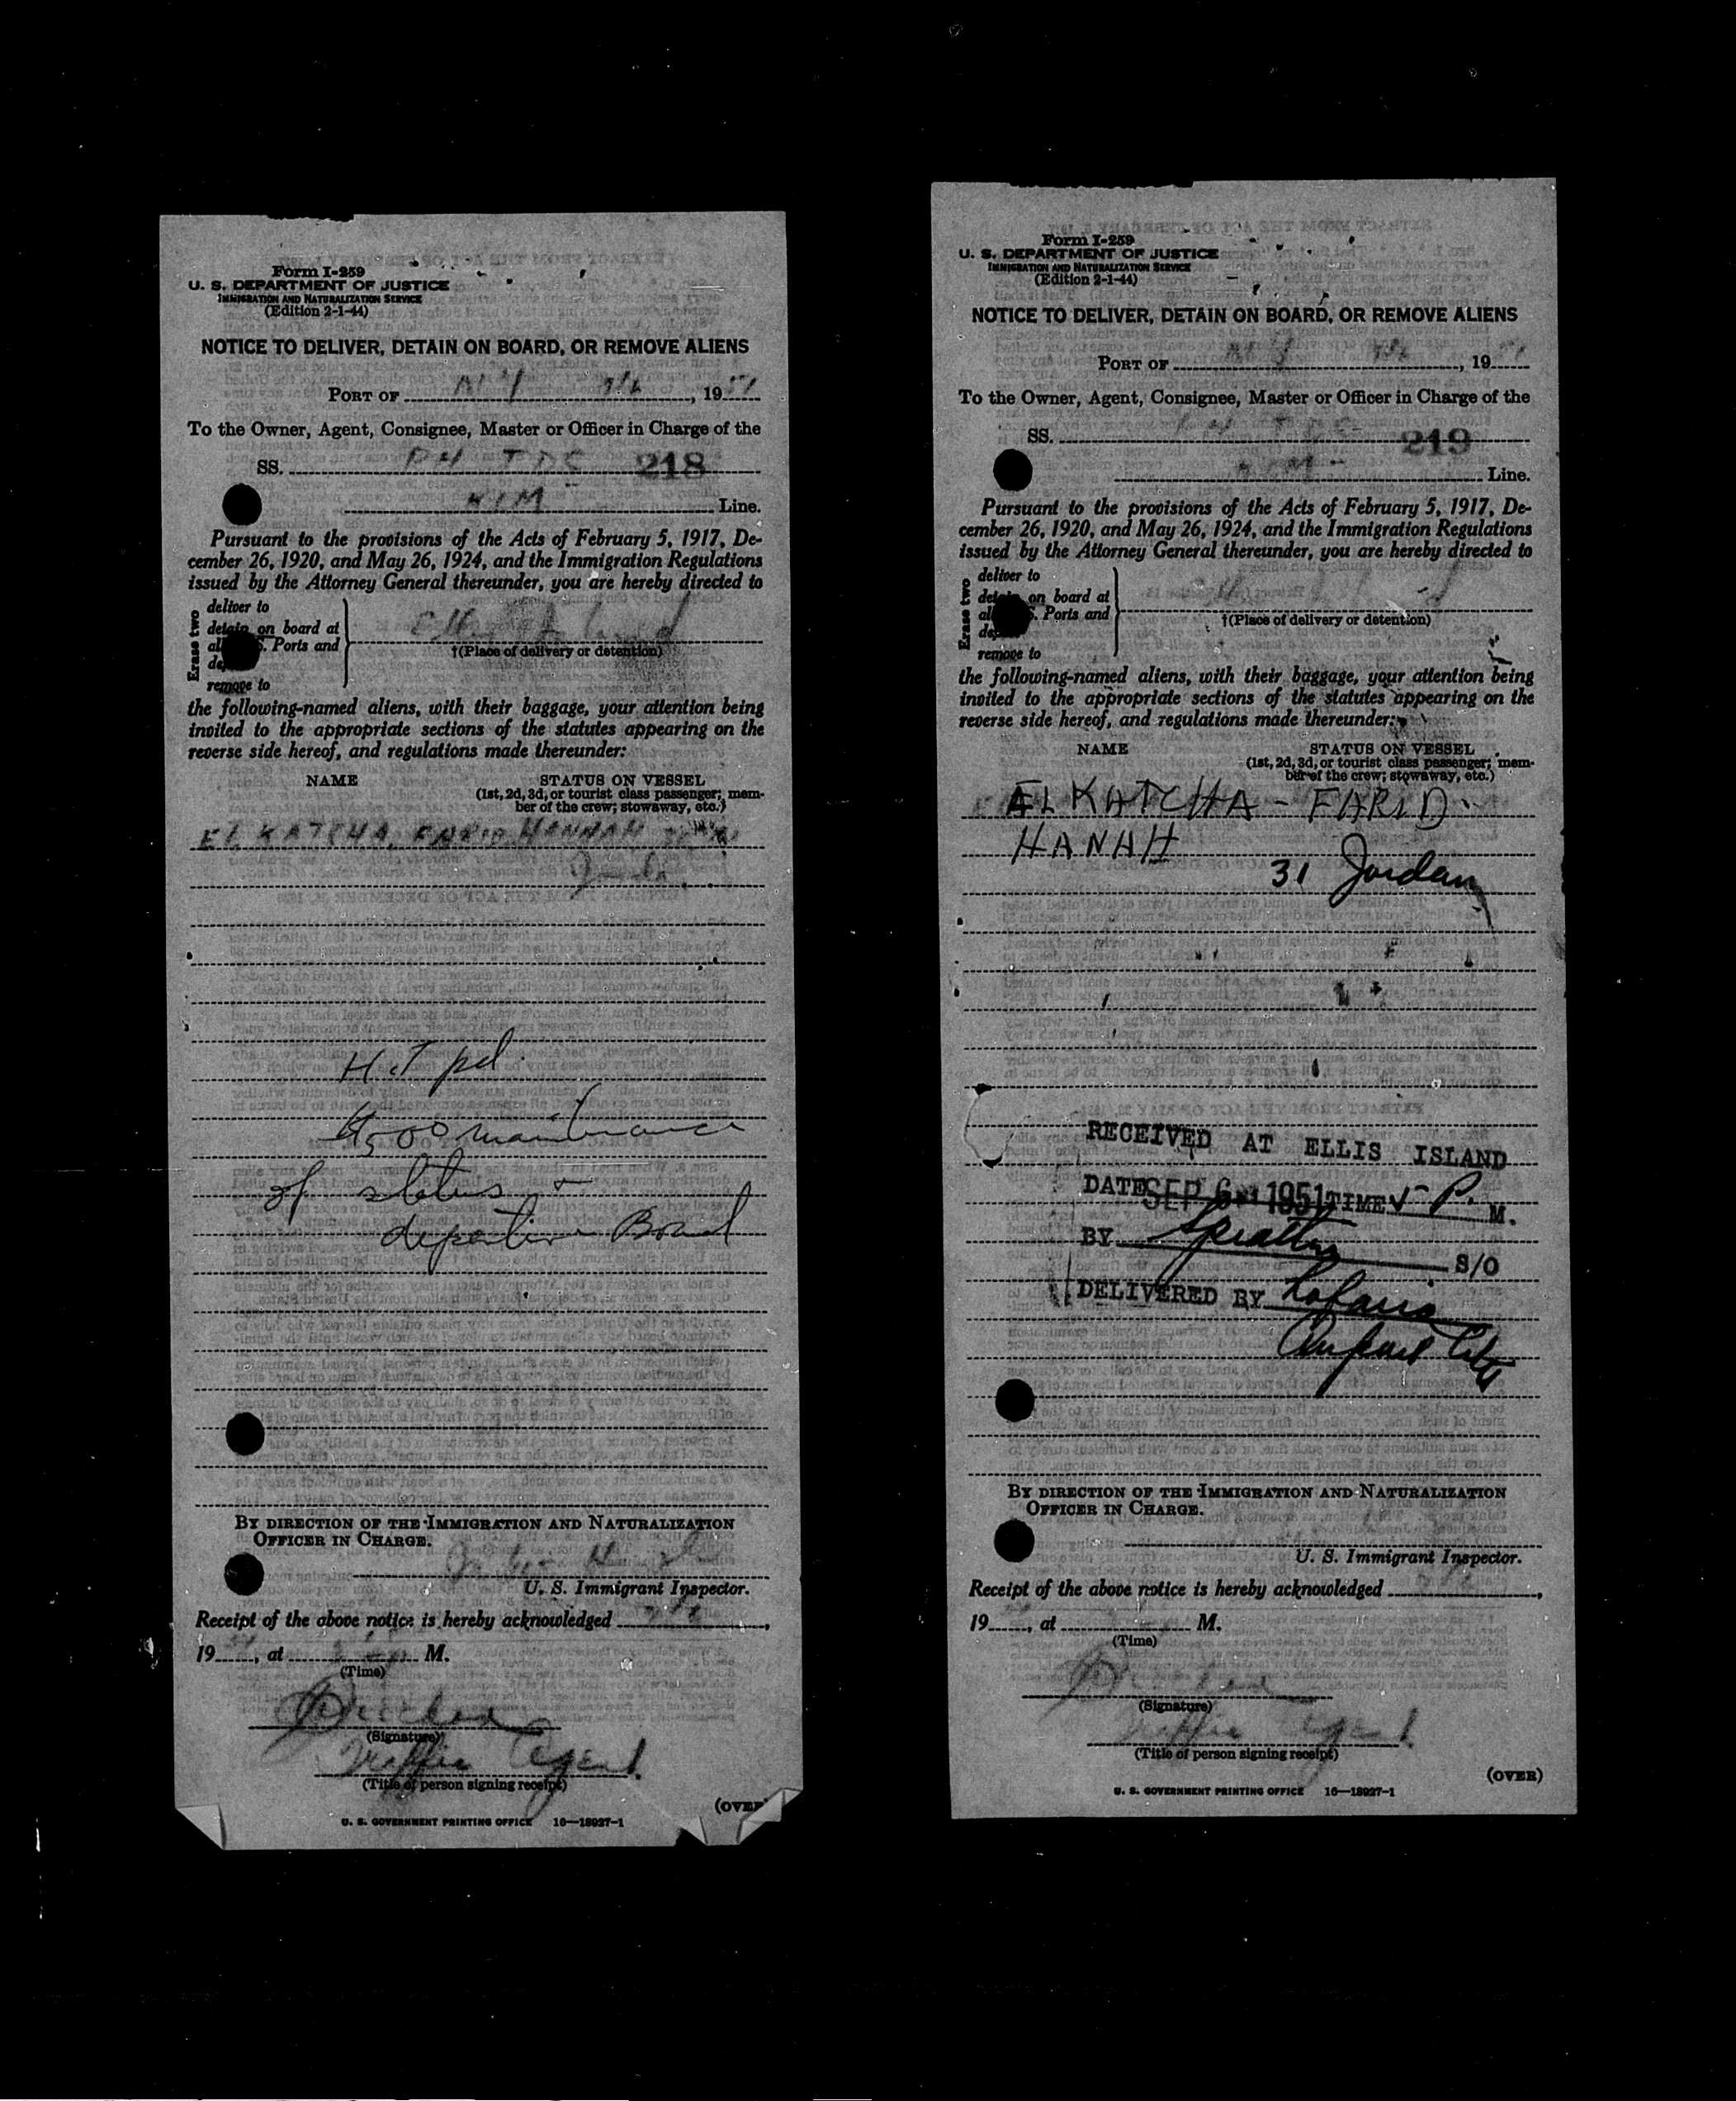 Form I-259
U. S. DEPARTMENT OF JUSTICE
IMMIGRATION AND NATURALIZATION SERVICE
(Edition 2-1-44)
NOTICE TO DELIVER, DETAIN ON BOARD, OR REMOVE ALIENS
PORT OF N Y , 19 51
To the Owner, Agent, Consignee, Master or Officer in Charge of the
SS. PH TDC 218
KLM Line.
Pursuant to the provisions of the Acts of February 5, 1917, De-
cember 26, 1920, and May 26, 1924, and the Immigration Regulations
issued by the Attorney General thereunder, you are hereby directed to
Erase two
deliver to
detain on board at
all S. Ports and
de
remove to
Ellis Island
†(Place of delivery or detention)
the following-named aliens, with their baggage, your attention being
invited to the appropriate sections of the statutes appearing on the
reverse side hereof, and regulations made thereunder:
NAME STATUS ON VESSEL
(1st, 2d, 3d, or tourist class passenger; mem-
ber of the crew; stowaway, etc.)
EL KATCHA, FARID HANNAH
H.T pd.
$500 maintenance
of status +
departure Bond
BY DIRECTION OF THE IMMIGRATION AND NATURALIZATION
OFFICER IN CHARGE.
U. S. Immigrant Inspector.
Receipt of the above notice is hereby acknowledged ,
19 , at M.
(Time)
(Signature)
Traffic Agent
(Title of person signing receipt)
(OVER)
U. S. GOVERNMENT PRINTING OFFICE 16—18927-1
Form I-259
U. S. DEPARTMENT OF JUSTICE
IMMIGRATION AND NATURALIZATION SERVICE
(Edition 2-1-44)
NOTICE TO DELIVER, DETAIN ON BOARD, OR REMOVE ALIENS
PORT OF N Y , 19 51
To the Owner, Agent, Consignee, Master or Officer in Charge of the
SS. PH TDC 219
KLM Line.
Pursuant to the provisions of the Acts of February 5, 1917, De-
cember 26, 1920, and May 26, 1924, and the Immigration Regulations
issued by the Attorney General thereunder, you are hereby directed to
Erase two
deliver to
detain on board at
all S. Ports and
de
remove to
†(Place of delivery or detention)
the following-named aliens, with their baggage, your attention being
invited to the appropriate sections of the statutes appearing on the
reverse side hereof, and regulations made thereunder:
NAME STATUS ON VESSEL
(1st, 2d, 3d, or tourist class passenger; mem-
ber of the crew; stowaway, etc.)
EL KATCHA - FARID
HANAH
31 Jordan
RECEIVED AT ELLIS ISLAND
DATE SEP 6 1951 TIME P. M.
BY S/O
DELIVERED BY
BY DIRECTION OF THE IMMIGRATION AND NATURALIZATION
OFFICER IN CHARGE.
U. S. Immigrant Inspector.
Receipt of the above notice is hereby acknowledged ,
19 , at M.
(Time)
(Signature)
Traffic Agent
(Title of person signing receipt)
(OVER)
U. S. GOVERNMENT PRINTING OFFICE 16—18927-1